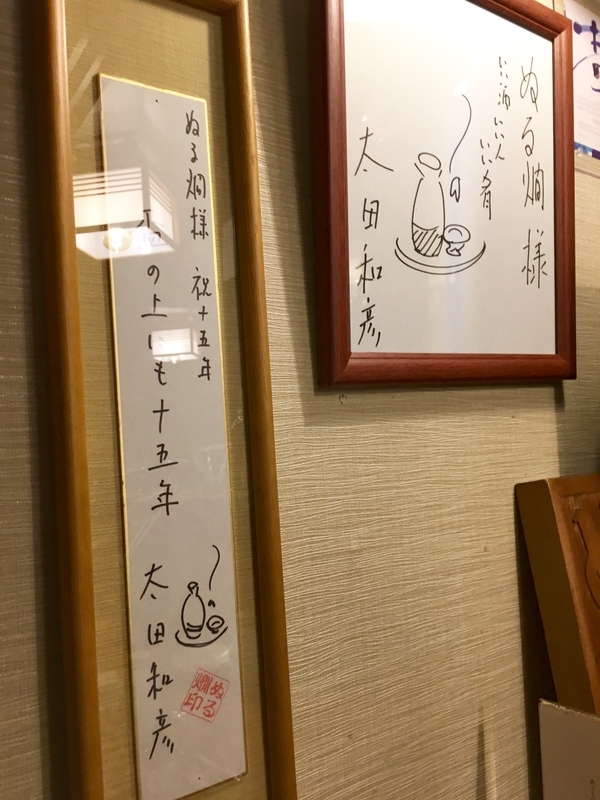 ぬる燗様
いい酒 いい人
いい肴
太田和彦
ぬる燗様 祝十五年
の上にも十五年
太田和彦
ぬる
燗印